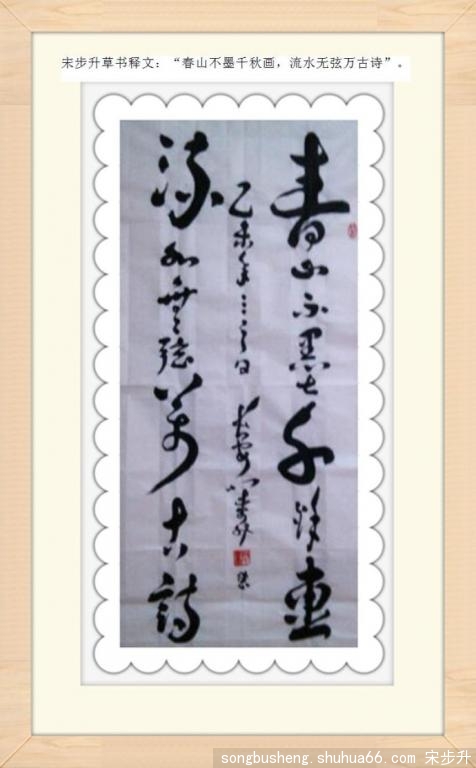 宋步升草书释文：“春山不墨千秋画，流水无弦万古诗”。
春山不墨千秋畫
乙未年 日 長安 宋步升
流水無弦萬古詩
songbusheng.shuhua66.com 宋步升